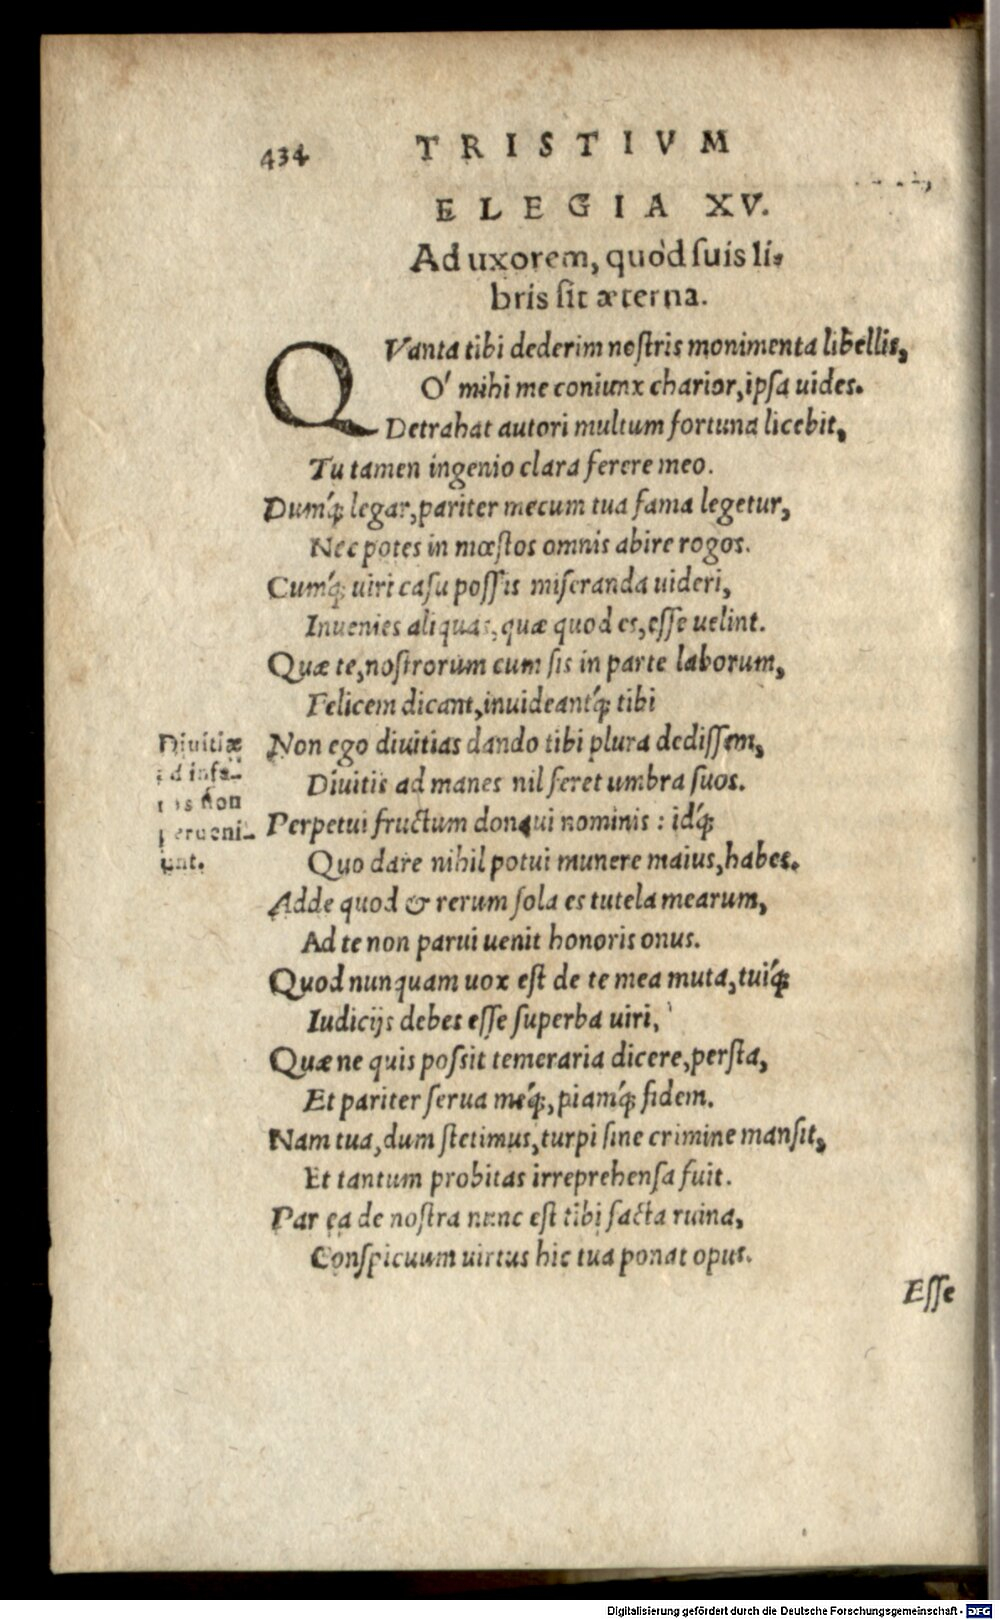 434 TRISTIVM
ELEGIA XV.
Ad uxorem, quòd ſuis li-
bris ſit æterna.
QVanta tibi dederim noſtris monimenta libellis,
O' mihi me coniunx charior, ipſa uides.
Detrahat autori multum fortuna licebit,
Tu tamen ingenio clara ferere meo.
Dumq́; legar, pariter mecum tua fama legetur,
Nec potes in mœſtos omnis abire rogos.
Cumq́; uiri caſu poſſis miſeranda uideri,
Inuenies aliquas, quæ quod es, eſſe uelint.
Quæ te, noſtrorum cum ſis in parte laborum,
Felicem dicant, inuideantq́; tibi
Non ego diuitias dando tibi plura dediſſem,
Diuitis ad manes nil feret umbra ſuos.
Perpetui fructum donaui nominis : idq́;
Quo dare nihil potui munere maius, habes.
Adde quod & rerum ſola es tutela mearum,
Ad te non parui uenit honoris onus.
Quod nunquam uox eſt de te mea muta, tuiq́;
Iudicijs debes eſſe ſuperba uiri,
Quæ ne quis poſsit temeraria dicere, perſta,
Et pariter ſerua meq́;, piamq́; fidem.
Nam tua, dum ſtetimus, turpi ſine crimine manſit,
Et tantum probitas irreprehenſa fuit.
Par ea de noſtra nunc eſt tibi facta ruina,
Conſpicuum uirtus hic tua ponat opus.
Eſſe
Diuitiæ
ad infe-
ros non
perueni-
unt.
Digitalisierung gefördert durch die Deutsche Forschungsgemeinschaft - DFG